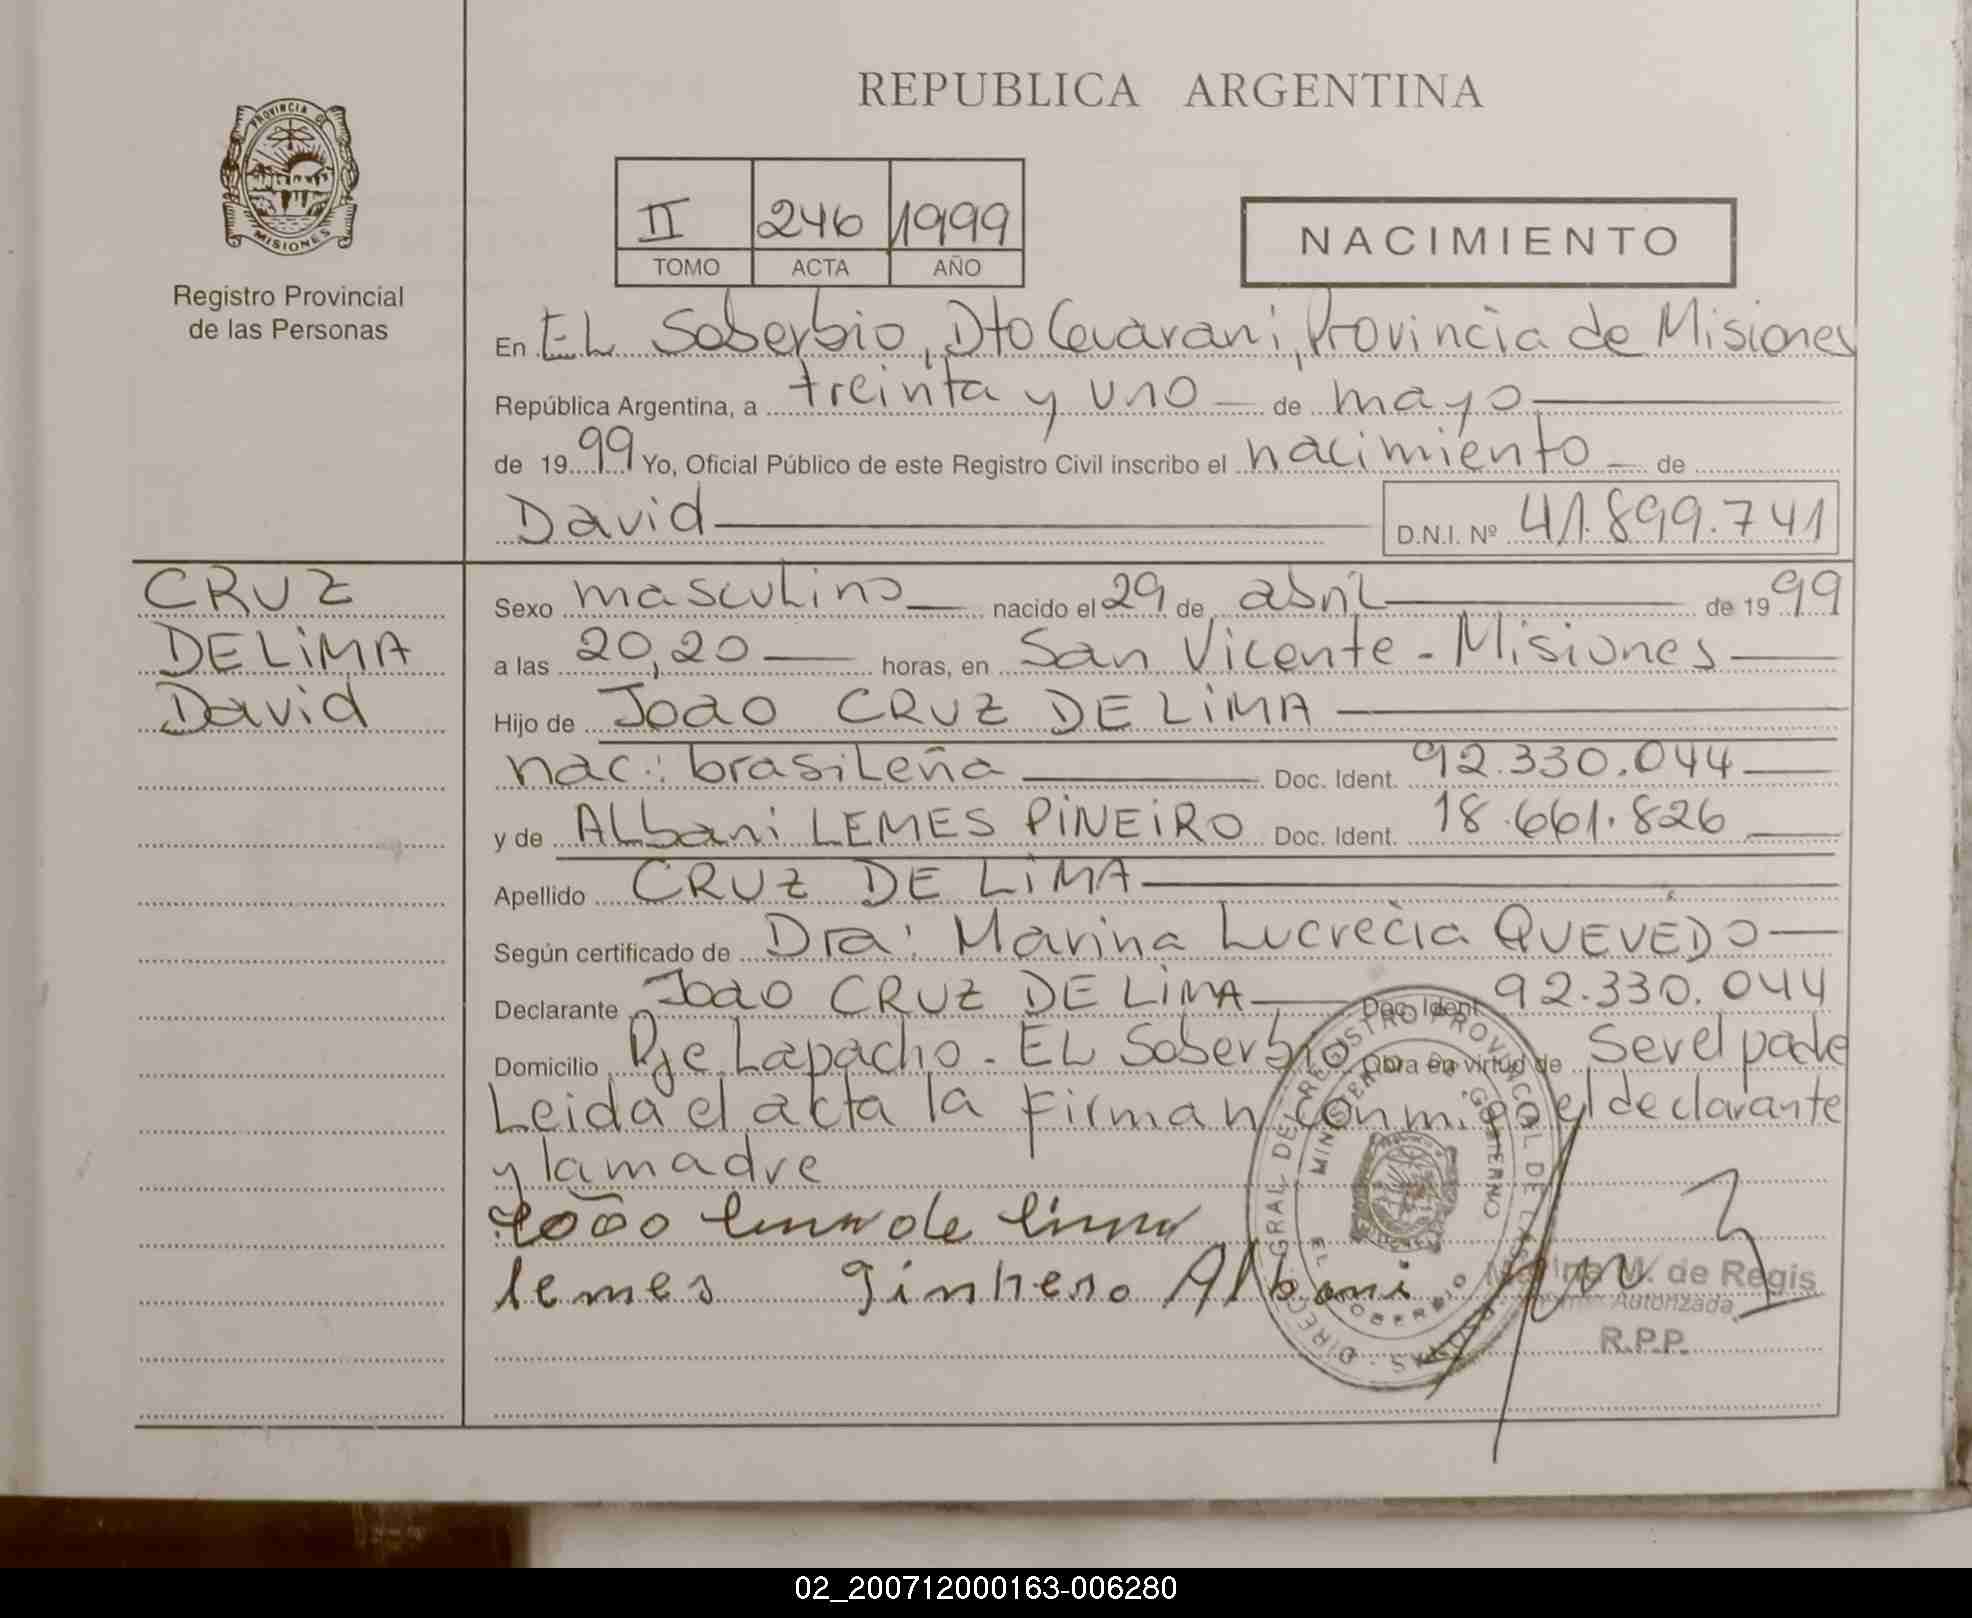 REPUBLICA ARGENTINA
PROVINCIA DE
MISIONES
Registro Provincial
de las Personas
II 246 1999
TOMO ACTA AÑO
NACIMIENTO
En EL Soberbio, Dto Guarani, Provincia de Misiones
República Argentina, a treinta y uno de mayo
de 1999 Yo, Oficial Público de este Registro Civil inscribo el nacimiento de
David D.N.I. Nº 41.899.741
CRUZ
DE LIMA
David
Sexo masculino nacido el 29 de abril de 1999
a las 20,20 horas, en San Vicente - Misiones
Hijo de Joao CRUZ DE LIMA
nac: brasileña Doc. Ident. 92.330.044
y de Albani LEMES PINEIRO Doc. Ident. 18.661.826
Apellido CRUZ DE LIMA
Según certificado de Dra: Marina Lucrecia QUEVEDO
Declarante Joao CRUZ DE LIMA Doc. Ident. 92.330.044
Domicilio Pje Lapacho - EL Soberbio Obra en virtud de Ser el padre
Leida el acta la Firman conmigo el declarante
y la madre
João Cruz de lima
lemes Pinhero Albani
DIREC. GRAL. DEL REGISTRO PROVINCIAL DE LAS PERSONAS
MINISTERIO DE GOBIERNO
EL SOBERBIO
M. de Regis
Autorizada
R.P.P.
02_200712000163-006280